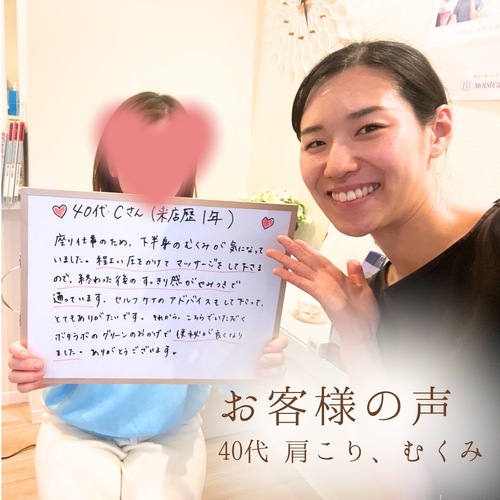 40代・Cさん（来店歴1年）
座り仕事のため、下半身のむくみが気になって
いました。程よい圧をかけてマッサージをして下さる
ので、終わった後のすっきり感がやみつきで
通っています。セルフケアのアドバイスもして下さって、
とてもありがたいです。それから、こちらでいただく
ボタラボのグリーンのおかげで便秘が良くなり
ました。ありがとうございます。
お客様の声
40代 肩こり、むくみ